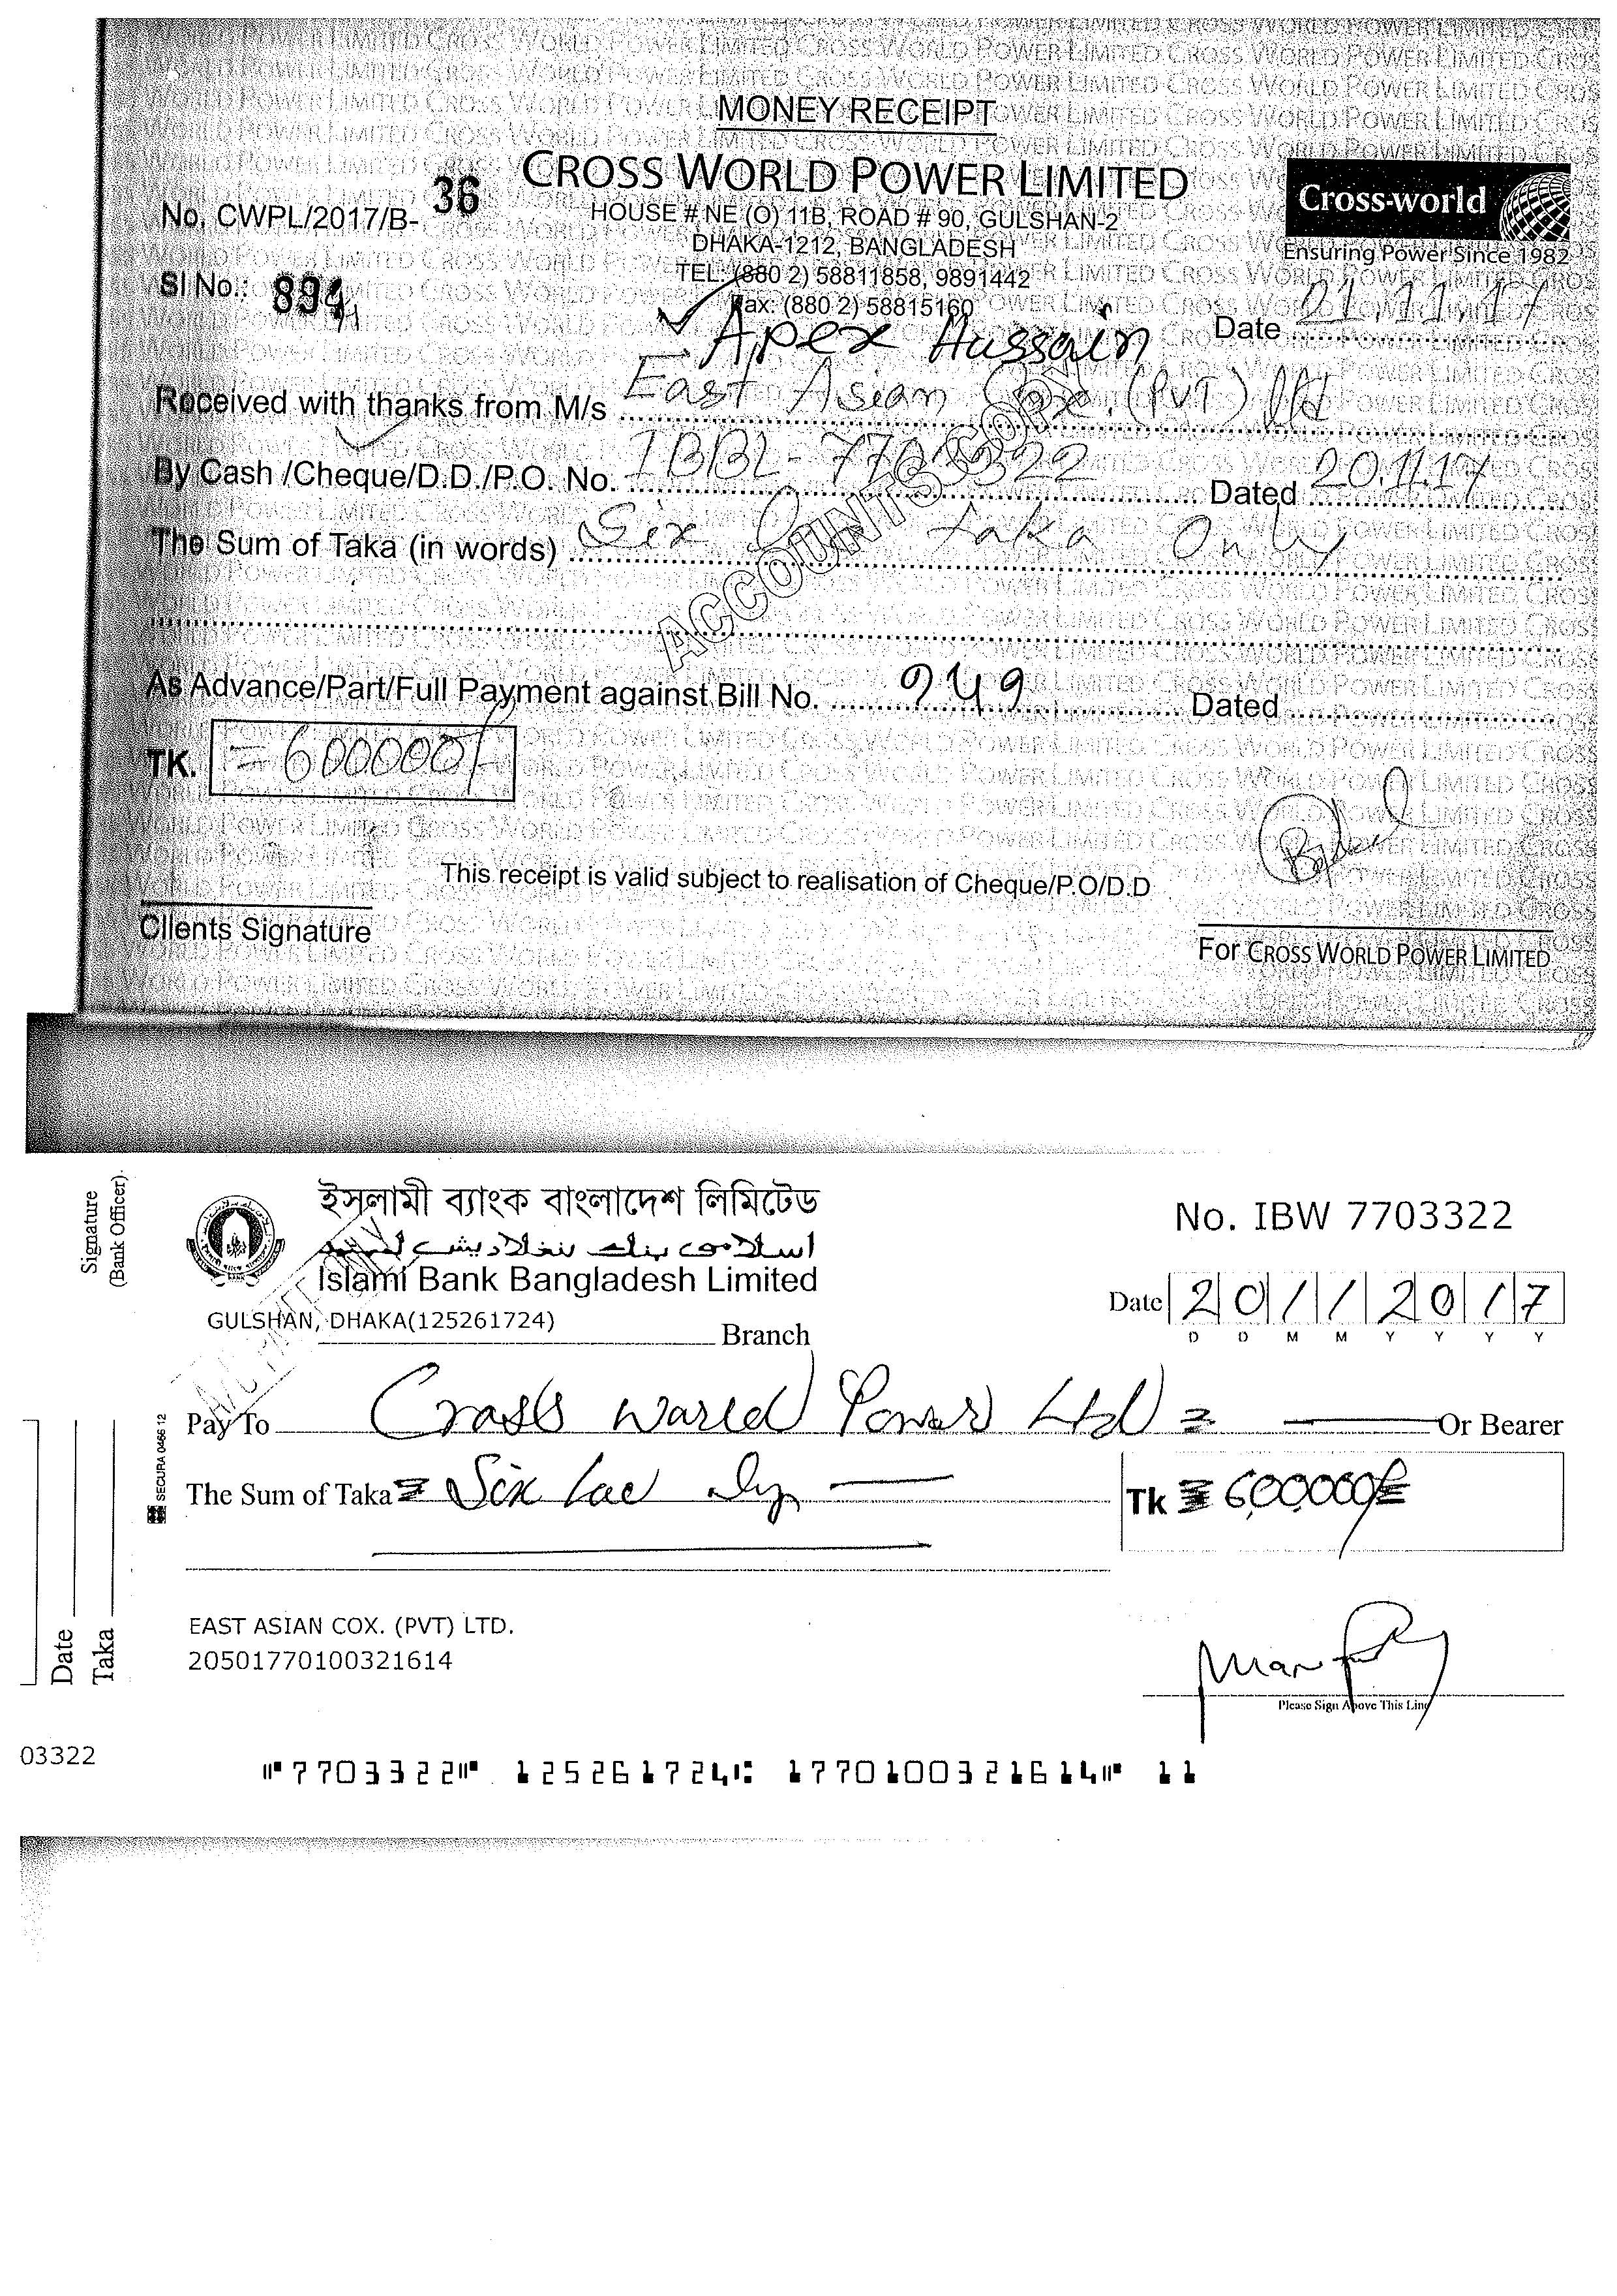 MONEY RECEIPT
CROSS WORLD POWER LIMITED
No. CWPL/2017/B- 36
HOUSE # NE (O) 11B, ROAD # 90, GULSHAN-2
DHAKA-1212, BANGLADESH
TEL: (880 2) 58811858, 9891442
Fax: (880 2) 58815160
Cross-world
Ensuring Power Since 1982
Sl No.: 894
Date 21.11.17
Apex Hussain
Received with thanks from M/s East Asian Cox. (PVT) Ltd
By Cash /Cheque/D.D./P.O. No. IBBL- 7703322 Dated 20.11.17
The Sum of Taka (in words) Six Lac taka Only
ACCOUNTS COPY
As Advance/Part/Full Payment against Bill No. 949 Dated
TK. = 600000/
This receipt is valid subject to realisation of Cheque/P.O/D.D
Clients Signature
For CROSS WORLD POWER LIMITED
Signature
(Bank Officer)
ইসলামী ব্যাংক বাংলাদেশ লিমিটেড
اسلامى بنك بنغلاديش لميتيد
Islami Bank Bangladesh Limited
GULSHAN, DHAKA(125261724)
Branch
No. IBW 7703322
Date 20112017
D D M M Y Y Y Y
A/C PAYEE ONLY
Pay To Cross world Power Ltd = Or Bearer
The Sum of Taka = Six lac only
Tk = 6,00,000/=
SECURA 0466 12
Date
Taka
EAST ASIAN COX. (PVT) LTD.
20501770100321614
Please Sign Above This Line
03322
⑈7703322⑈ 125261724⑆ 1770100321614⑈ 11